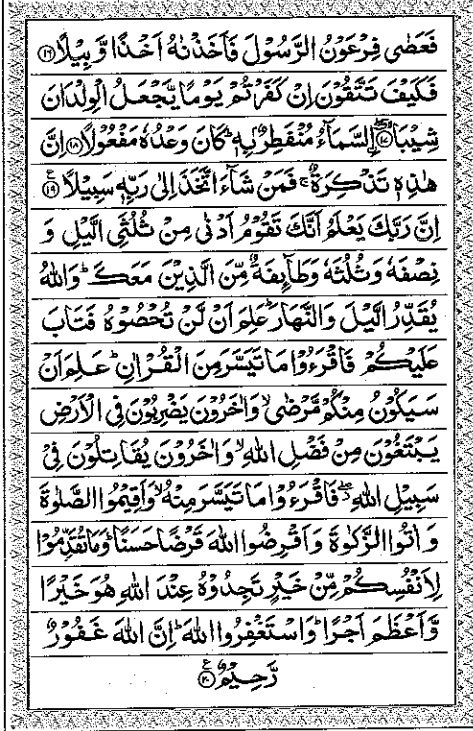 فَعَصٰى فِرْعَوْنُ الرَّسُوْلَ فَاَخَذْنٰهُ اَخْذًا وَّبِيْلًا ۝۱۶
فَكَيْفَ تَتَّقُوْنَ اِنْ كَفَرْتُمْ يَوْمًا يَّجْعَلُ الْوِلْدَانَ
شِيْبَاۨ ۝۱۷ۖ اِلسَّمَآءُ مُنْفَطِرٌۢ بِهٖ ؕ كَانَ وَعْدُهٗ مَفْعُوْلًا ۝۱۸ اِنَّ
هٰذِهٖ تَذْكِرَةٌ ۚ فَمَنْ شَآءَ اتَّخَذَ اِلٰى رَبِّهٖ سَبِيْلًا ۝۱۹ع
اِنَّ رَبَّكَ يَعْلَمُ اَنَّكَ تَقُوْمُ اَدْنٰى مِنْ ثُلُثَىِ الَّيْلِ وَ
نِصْفَهٗ وَثُلُثَهٗ وَطَآئِفَةٌ مِّنَ الَّذِيْنَ مَعَكَ ؕ وَاللّٰهُ
يُقَدِّرُ الَّيْلَ وَالنَّهَارَ ؕ عَلِمَ اَنْ لَّنْ تُحْصُوْهُ فَتَابَ
عَلَيْكُمْ فَاقْرَءُوْا مَا تَيَسَّرَ مِنَ الْقُرْاٰنِ ؕ عَلِمَ اَنْ
سَيَكُوْنُ مِنْكُمْ مَّرْضٰى ۙ وَاٰخَرُوْنَ يَضْرِبُوْنَ فِى الْاَرْضِ
يَبْتَغُوْنَ مِنْ فَضْلِ اللّٰهِ ۙ وَاٰخَرُوْنَ يُقَاتِلُوْنَ فِىْ
سَبِيْلِ اللّٰهِ ۖ فَاقْرَءُوْا مَا تَيَسَّرَ مِنْهُ ۙ وَاَقِيْمُوا الصَّلٰوةَ
وَاٰتُوا الزَّكٰوةَ وَاَقْرِضُوا اللّٰهَ قَرْضًا حَسَنًا ؕ وَمَا تُقَدِّمُوْا
لِاَنْفُسِكُمْ مِّنْ خَيْرٍ تَجِدُوْهُ عِنْدَ اللّٰهِ هُوَ خَيْرًا
وَّاَعْظَمَ اَجْرًا ؕ وَاسْتَغْفِرُوا اللّٰهَ ؕ اِنَّ اللّٰهَ غَفُوْرٌ
رَّحِيْمٌ ۝۲۰ع